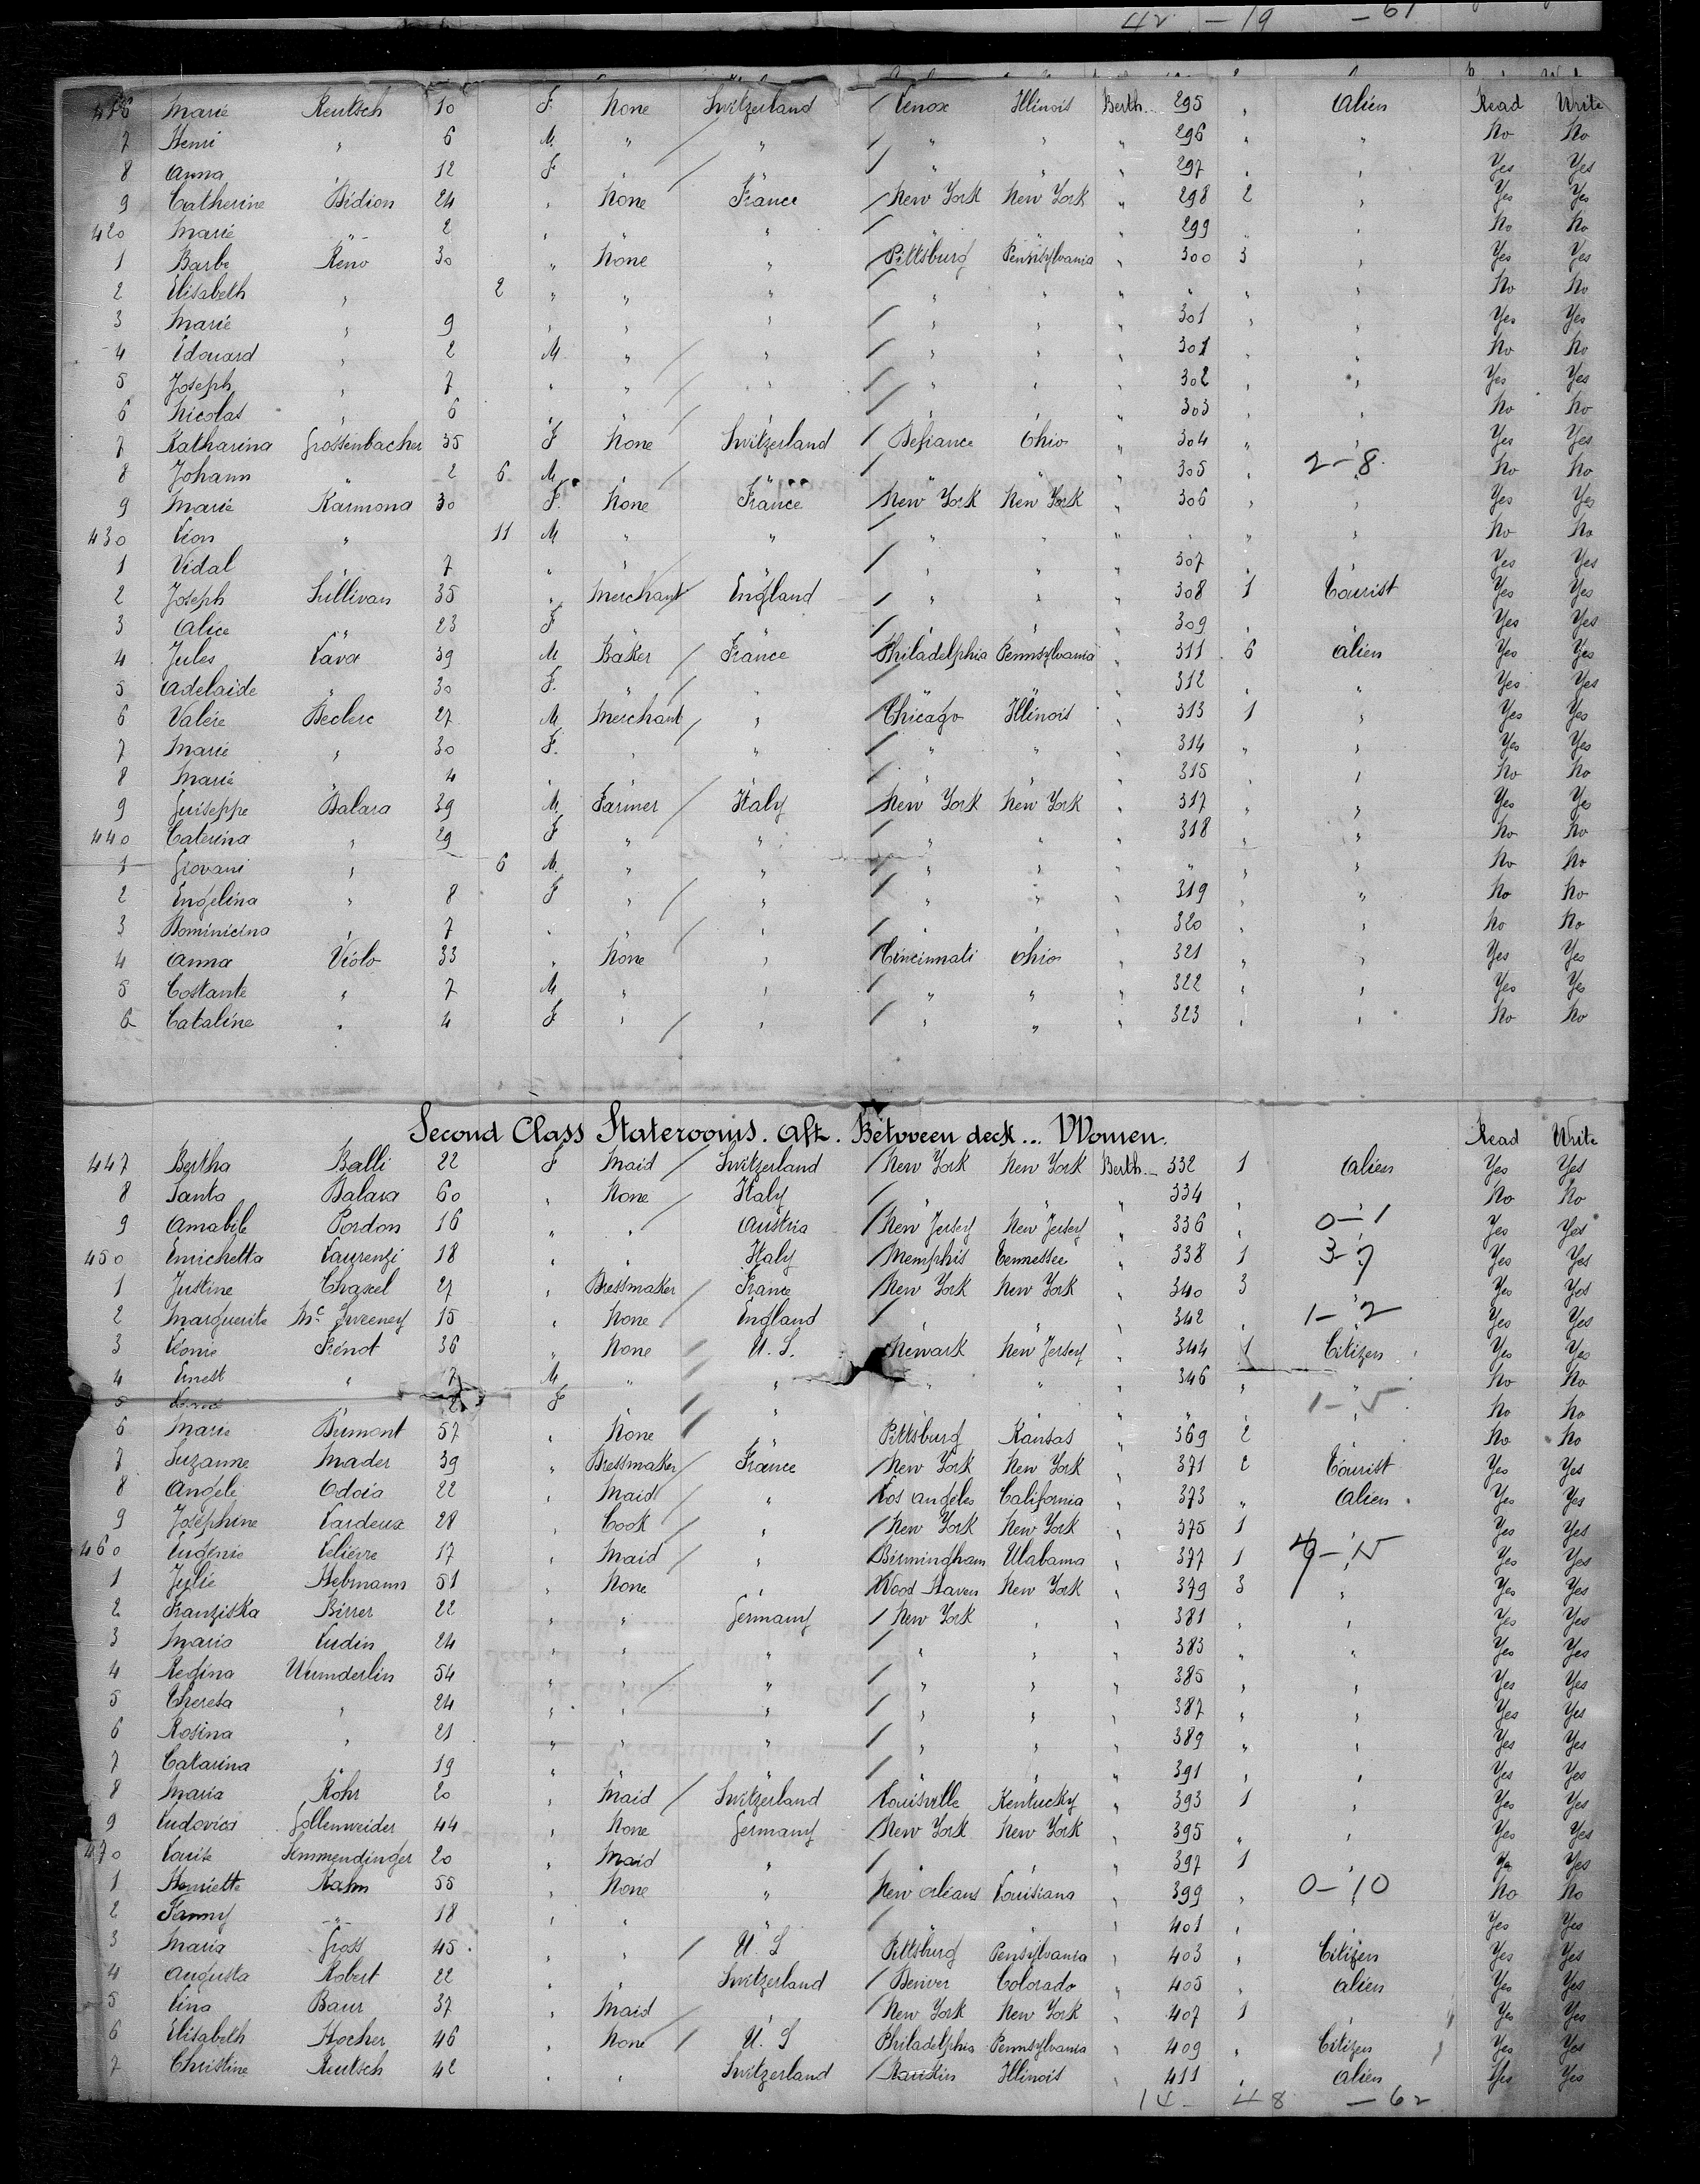 42 - 19 - 61
416 Marie Reutsch 10 F None Switzerland / Lenox Illinois Berth. 295 " Alien Read Write
7 Henri " 6 M. " / " / " " " 296 " " No No
8 Anna " 12 F " / " / " " " 297 " " Yes Yes
9 Catherine Bidion 24 " None France / New York New York " 298 2 " Yes Yes
420 Marie " 2 " " " / " " " 299 " " No No
1 Barbe Reno 30 " None " / Pittsburg Pennsylvania " 300 3 " Yes Yes
2 Elisabeth " 2 " " " / " " " " " " No No
3 Marie " 9 " " " / " " " 301 " " Yes Yes
4 Edouard " 2 M " / " / " " " 301 " " No No
5 Joseph " 7 " " / " / " " " 302 " " Yes Yes
6 Nicolas " 6 " " / " / " " " 303 " " No No
7 Katharina Grossenbacher 35 F None Switzerland / Defiance Ohio " 304 " " Yes Yes
8 Johann " 2 6 M " / " / " " " 305 " 2-8 No No
9 Marie Karmona 30 F. None France / New York New York " 306 " " Yes Yes
430 Léon " 11 M " " / " " " " " " No No
1 Vidal " 7 " " " / " " " 307 " " Yes Yes
2 Joseph Sullivan 35 " Merchant / England / " " " 308 1 Tourist Yes Yes
3 Alice " 23 F " " / " " " 309 " " Yes Yes
4 Jules Lava 39 M Baker / France / Philadelphia Pennsylvania " 311 6 Alien Yes Yes
5 Adelaide " 30 F. " / " / " " " 312 " " Yes Yes
6 Valére Declerc 27 M Merchant / " / Chicago Illinois " 313 1 " Yes Yes
7 Marie " 30 F. " " / " " " 314 " " Yes Yes
8 Marie " 4 " " " / " " " 315 " " No No
9 Guiseppe Balara 39 M. Farmer / Italy / New York New York " 317 " " Yes Yes
440 Caterina " 29 F " " / " " " 318 " " No No
1 Giovani " 6 M. " " / " " " " " " No No
2 Engelina " 8 F " / " / " " " 319 " " No No
3 Dominicina " 7 " " / " / " " " 320 " " No No
4 Anna Violo 33 " None " / Cincinnati Ohio " 321 " " Yes Yes
5 Costante " 7 M " " / " " " 322 " " Yes Yes
6 Cataline " 4 F " / " / " " " 323 " " No No
Second Class Staterooms. Aft. Between deck... Women. Read Write
447 Bertha Balli 22 F Maid / Switzerland / New York New York Berth. 332 1 Alien Yes Yes
8 Santa Balara 60 " None / Italy / " " " 334 " " No No
9 Amabile Pordon 16 " " Austria / New Jersey New Jersey " 336 " 0-1 Yes Yes
450 Enrichetta Laurenzi 18 " " Italy / Memphis Tennessee " 338 1 3-7 Yes Yes
1 Justine Chaxel 27 " Dressmaker / France / New York New York " 340 3 " Yes Yes
2 Marguerite Mc Sweeney 15 " None / England / " " " 342 " 1-2 Yes Yes
3 Léonie Frénot 36 " None / U. S. Newark New Jersey " 344 1 Citizen Yes Yes
4 Ernest " 7 M " / " " " " 346 " " No No
5 2 F " / " " " " " " 1-5 No No
6 Marie Dumont 57 " None / Pittsburg Kansas " 369 2 No No
7 Suzanne Mader 39 " Dressmaker / France / New York New York " 371 2 Tourist Yes Yes
8 Angéle Odoia 22 " Maid / " Los Angeles California " 373 " Alien Yes Yes
9 Joséphine Lardeux 28 " Cook / " / New York New York " 375 1 " Yes Yes
460 Eugénie Leliévre 17 " Maid / " Birmingham Alabama " 377 1 Yes Yes
1 Julie Hebmann 51 " None " Wood Haven New York " 379 3 " Yes Yes
2 Franziska Birrer 22 " " Germany / New York " " 381 " " Yes Yes
3 Maria Ludin 24 " " " / " " " 383 " " Yes Yes
4 Regina Wunderlin 54 " " / " / " " " 385 " " Yes Yes
5 Theresa " 24 " " / " / " " " 387 " " Yes Yes
6 Rosina " 21 " " " / " " " 389 " " Yes Yes
7 Catarina " 19 " " " / " " " 391 " " Yes Yes
8 Maria Rohr 20 " Maid / Switzerland / Louisville Kentucky " 393 1 " Yes Yes
9 Ludovica Gollenweider 44 " None Germany / New York New York " 395 " " Yes Yes
470 Louise Semmendinger 20 " Maid " / " " " 397 1 " Yes Yes
1 Henriette Kahn 55 " None " New Orleans Louisiana " 399 " 0-10 No No
2 Fanny " 18 " " " / " " " 401 " " Yes Yes
3 Maria Gross 45 " " / U. S Pittsburg Pensylvania " 403 " Citizen Yes Yes
4 Augusta Robert 22 " " Switzerland / Denver Colorado " 405 " Alien Yes Yes
5 Lina Baur 37 " Maid / " / New York New York " 407 1 " Yes Yes
6 Elisabeth Hocher 46 " None / U. S Philadelphia Pennsylvania " 409 " Citizen Yes Yes
7 Christine Reutsch 42 " " Switzerland / Illinois " 411 " Alien Yes Yes
14 - 48 - 62